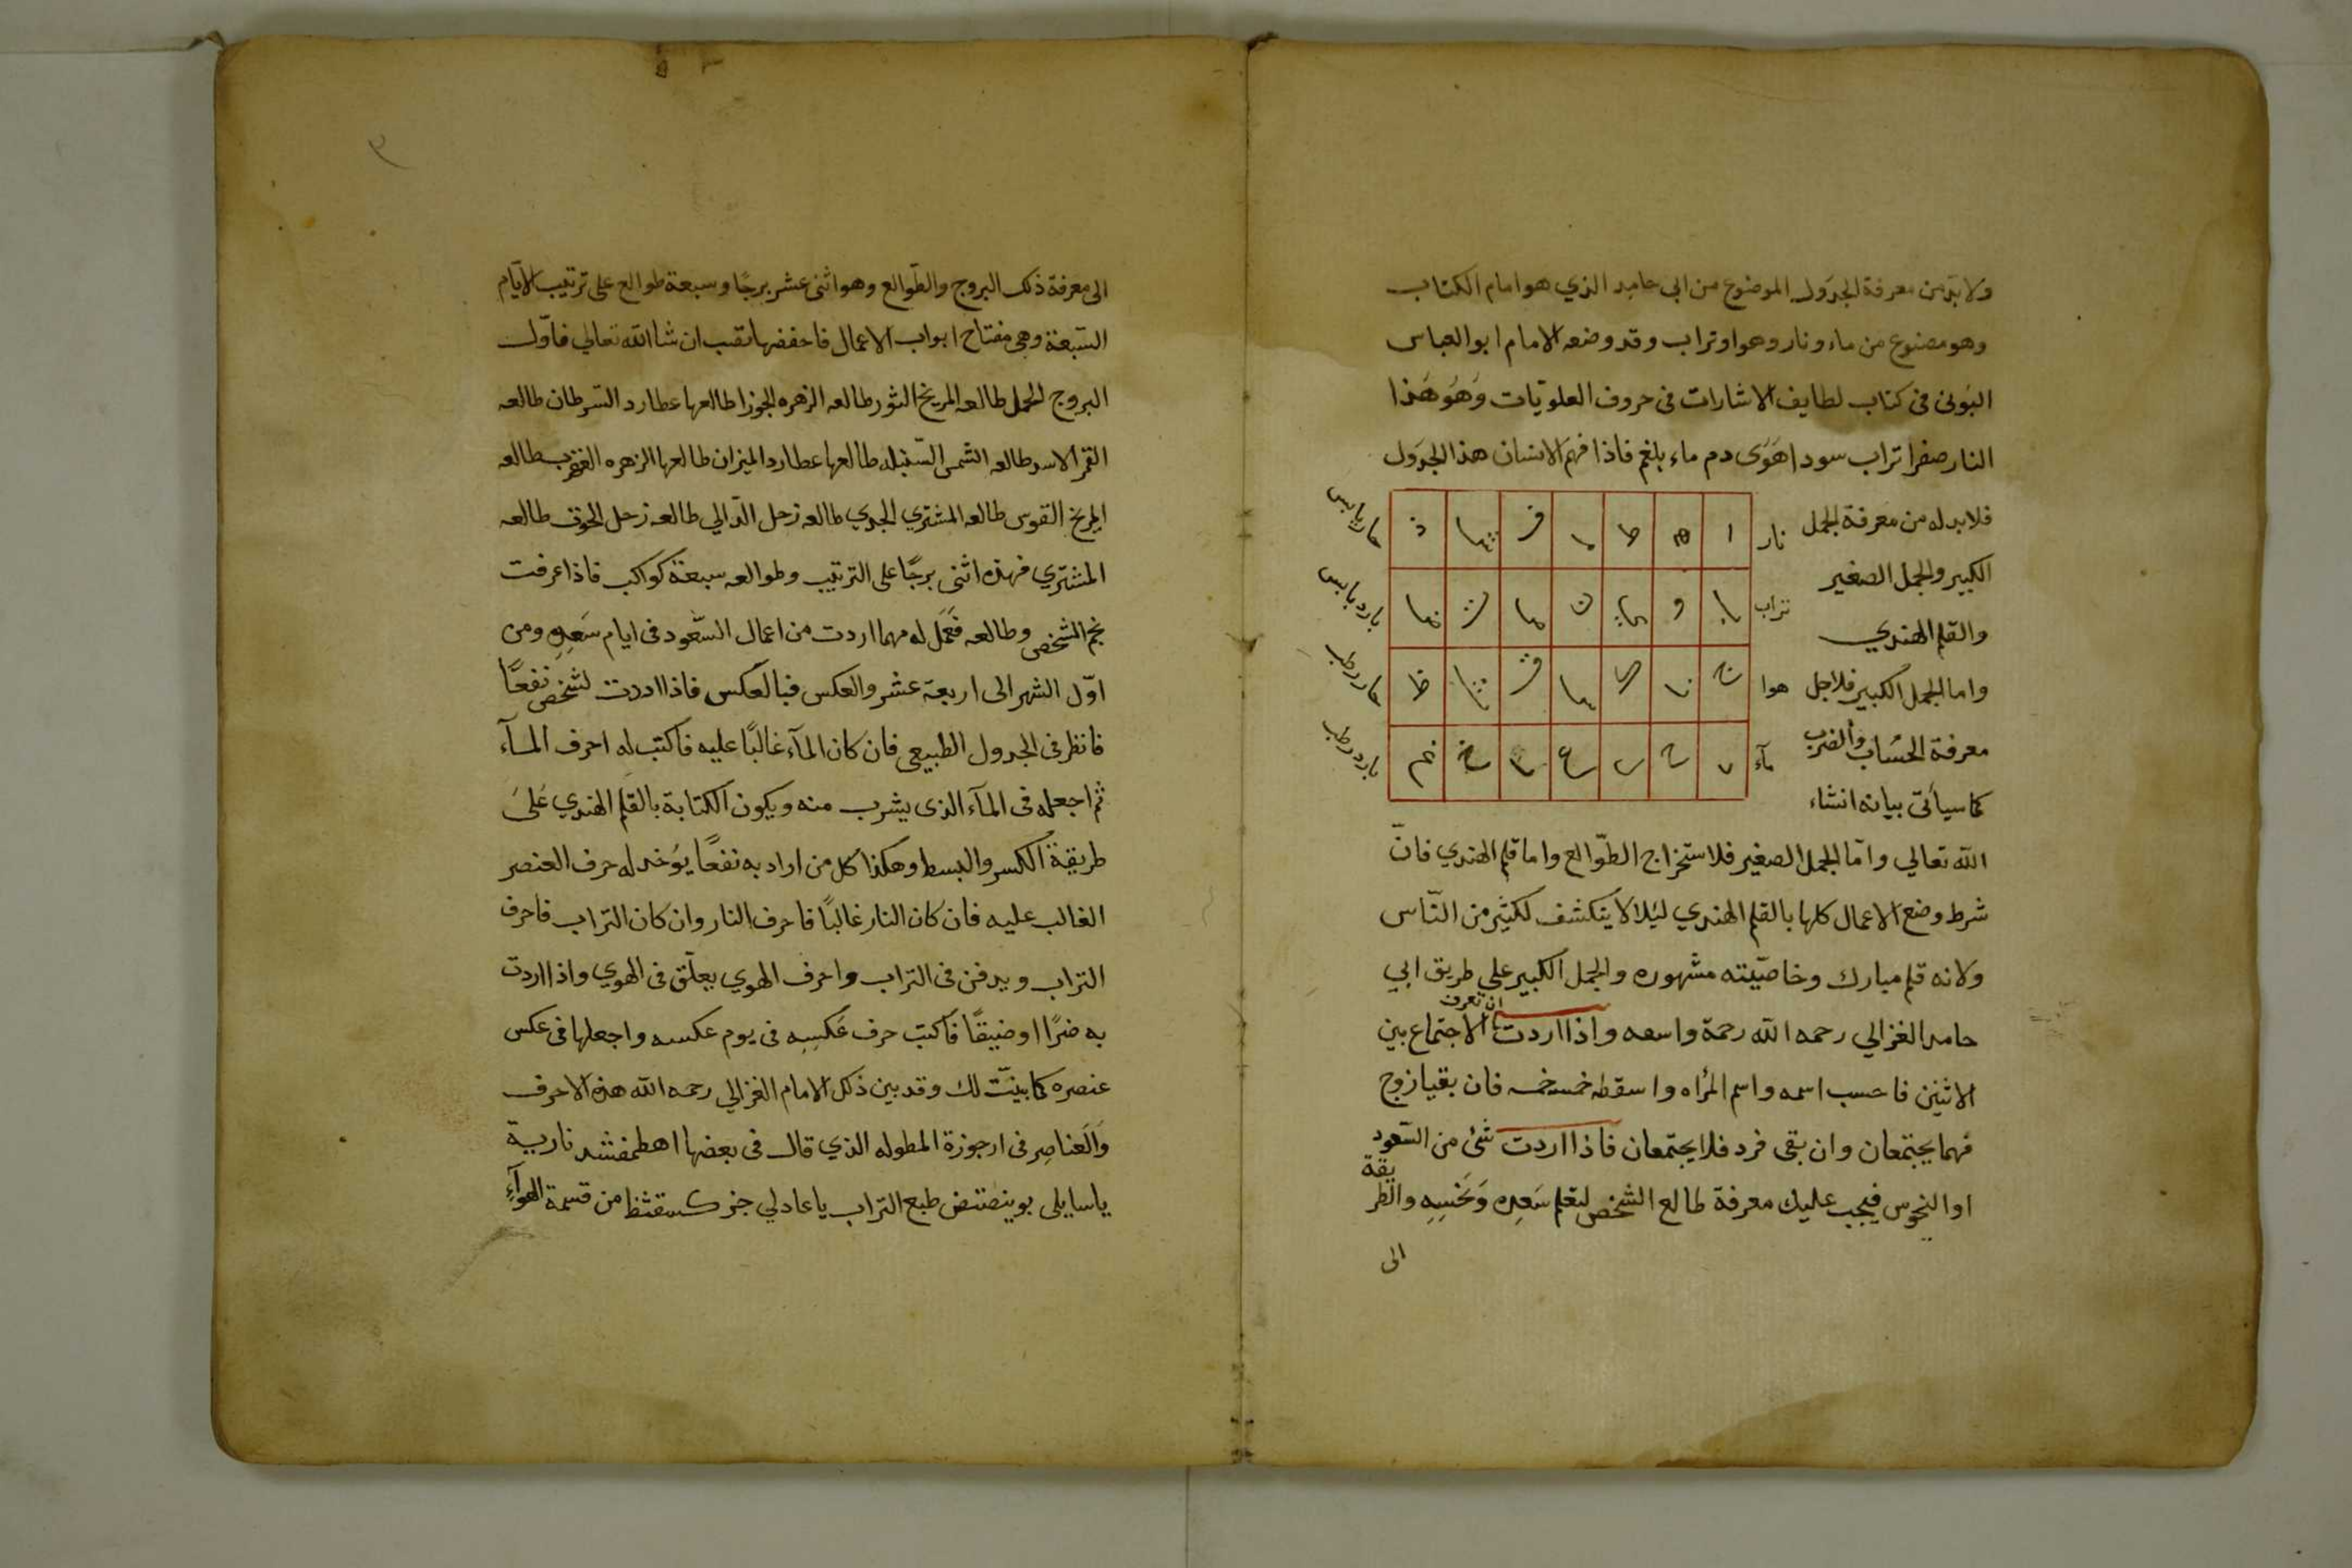 ولابد من معرفة الجدول الموضوع من ابى حامد الذي هو امام الكتاب
وهو مصنوع من ماء ونار وهوا وتراب وقد وضعه الامام ابو العباس
البونى فى كتاب لطايف الاشارات فى حروف العلويات وَهُوَ هَذا
النار صفرا تراب سودا هَوَى دم ماء بلغم فاذا فهم الانسان هذا الجدول
فلابد له من معرفة الجمل
الكبير والجمل الصغير
والقلم الهندي
واما الجمل الكبير فلاجل
معرفة الحساب والضرب
كما سيأتى بيانه انشاء
نار ا ه ط م ف ش ذ حار يابس
تراب ب و ي ن ص ت ض بارد يابس
هوا ج ز ك س ق ث ظ حار رطب
مآء د ح ل ع ر خ غ بارد رطب
الله تعالي وامّا الجمل الصغير فلاستخراج الطّوالع واما قلم الهندي فانّ
شرط وضع الاعمال كلها بالقلم الهندي ليئلا لا ينكشف لكثير من النّاس
ولانه قلم مبارك وخاصّيته مشهوره والجمل الكبير علي طريق ابي
حامد الغزالي رحمه الله رحمة واسعه واذا اردت ان تعرف الاجتماع بين
الاثنين فاحسب اسمه واسم المرأه واسقطه خمسه خمسه فان بقيا زوج
فهما يجتمعان وان بقى فرد فلا يجتمعان فاذا اردت شئ من السّعود
او النحوس فيجب عليك معرفة طالع الشخص لتعلم سَعِدِه وَنحَسِهِ والطريقة
الى
٣
الى معرفة ذلك البروج والطّوالع وهو اثنى عشر برجًا وسبعة طوالع على ترتيب الايّام
السّبعة وهى مفتاح ابواب الاعمال فاحفضها تصب ان شا الله تعالي فاوّل
البروج الحمل طالعه المريخ الثور طالعه الزهره الجوزا طالعها عطارد السّرطان طالعه
القمر الاسد طالعه الشمس السّنبله طالعها عطارد الميزان طالعها الزهره العقرب طالعه
المريخ القوس طالعه المشتري الجدي طالعه زحل الدّالي طالعه زحل الحوت طالعه
المشتري فهذه اثنى برجًا على الترتيب وطوالعه سبعة كواكب فاذا عرفت
نجم الشخص وطالعه فَعَمَل له مهما اردت من اعمال السّعود فى ايام سَعدِهِ ومن
اوّل الشهر الى اربعة عشر والعكس فبالعكس فاذا اردت لشخص نفعًا
فانظر فى الجدول الطبيعى فان كان المآء غالبًا عليه فاكتب له احرف المآء
ثم اجعله فى المآء الذى يشرب منه ويكون الكتابة بالقلم الهندي عَلىَ
طريقة الكسر والبسط وهكذا كل من اراد به نفعًا يؤخد له حرف العنصر
الغالب عليه فان كان النار غالبًا فاحرف النار وان كان التراب فاحرف
التراب ويدفن فى التراب واحرف الهوي يعلّق فى الهوي واذا اردت
به ضرًا او ضيقًا فاكتب حرف عَكسِهِ فى يوم عكسه واجعلها فى عكس
عنصره كما بينّت لك وقد بين ذلك الامام الغزالي رحمه الله هذه الاحرف
وَالعَناصِر فى ارجوزة المطوله الذي قال فى بعضها اهطمفشد ناريية
ياسايلى بوينصتض طبع التراب يا عادلي جزكسقثظ من قسمة الهوآءِ